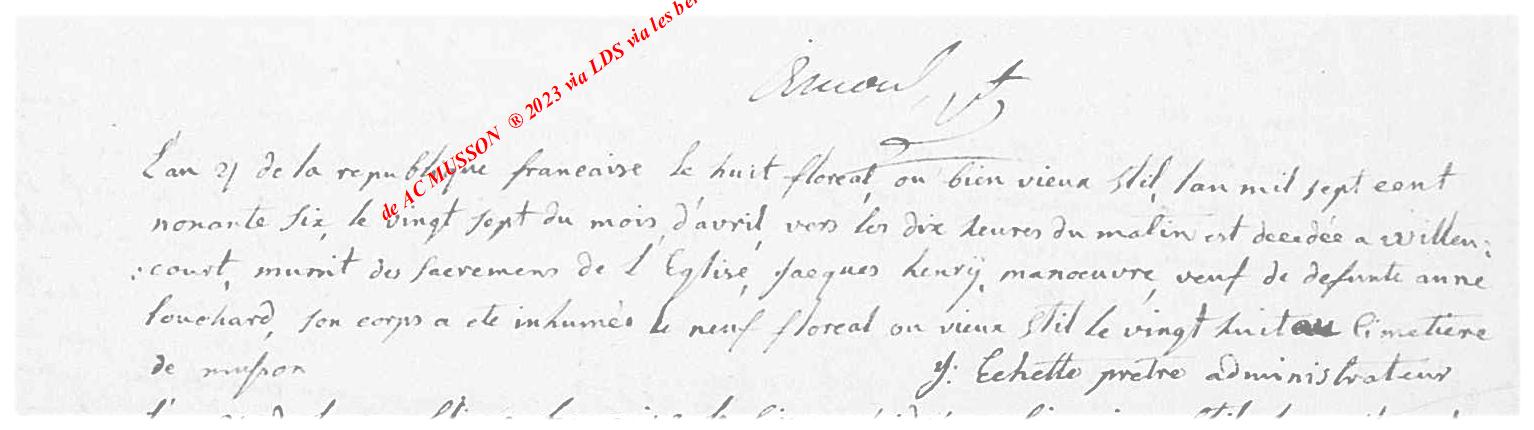 de AC MUSSON ® 2023 via LDS via les
L'an 4 de la republique francaise le huit floreal, ou bien vieux stil, l'an mil sept cent
nonante six, le vingt sept du mois d'avril, vers les dix heures du matin est decedée a willen:
:court, munit des sacremens de l'Eglise, Jacques henrÿ, manoeuvre, veuf de defunte anne
louchard, son corps a ete inhumés le neuf floreal ou vieux stil le vingt huit au Cimetiere
de musson
Echette pretre administrateur